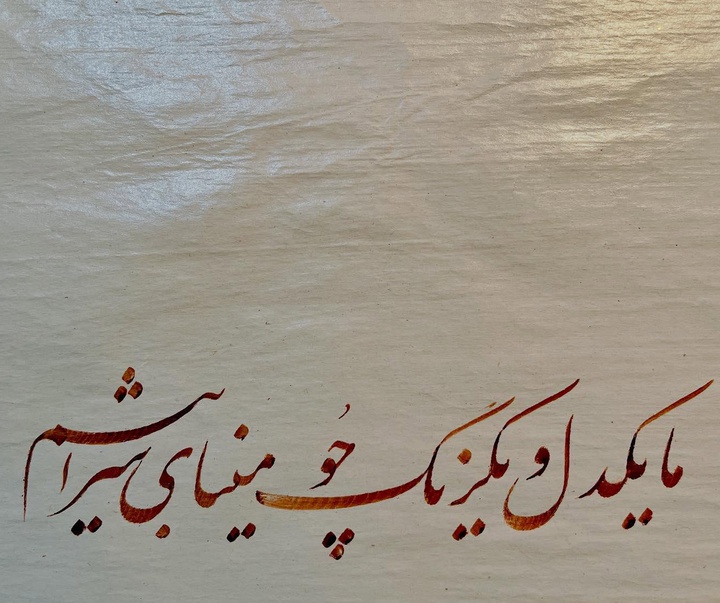 ما یکدل و یکرنگ چُو مینای شرابیم